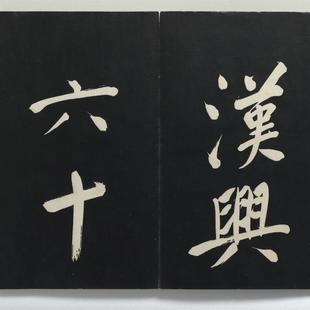 漢興
六十